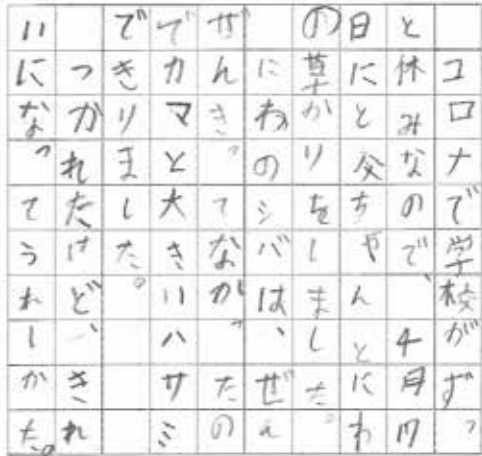 コロナで学校がずっ
と休みなので、4月17
日にと父ちゃんとにわ
の草かりをしました。
にわのシバは、ぜん
ぜんき。てなが。たの
でカマと大きいハサミ
できりました。
つかれたけど、きれ
いになってうれしかた。